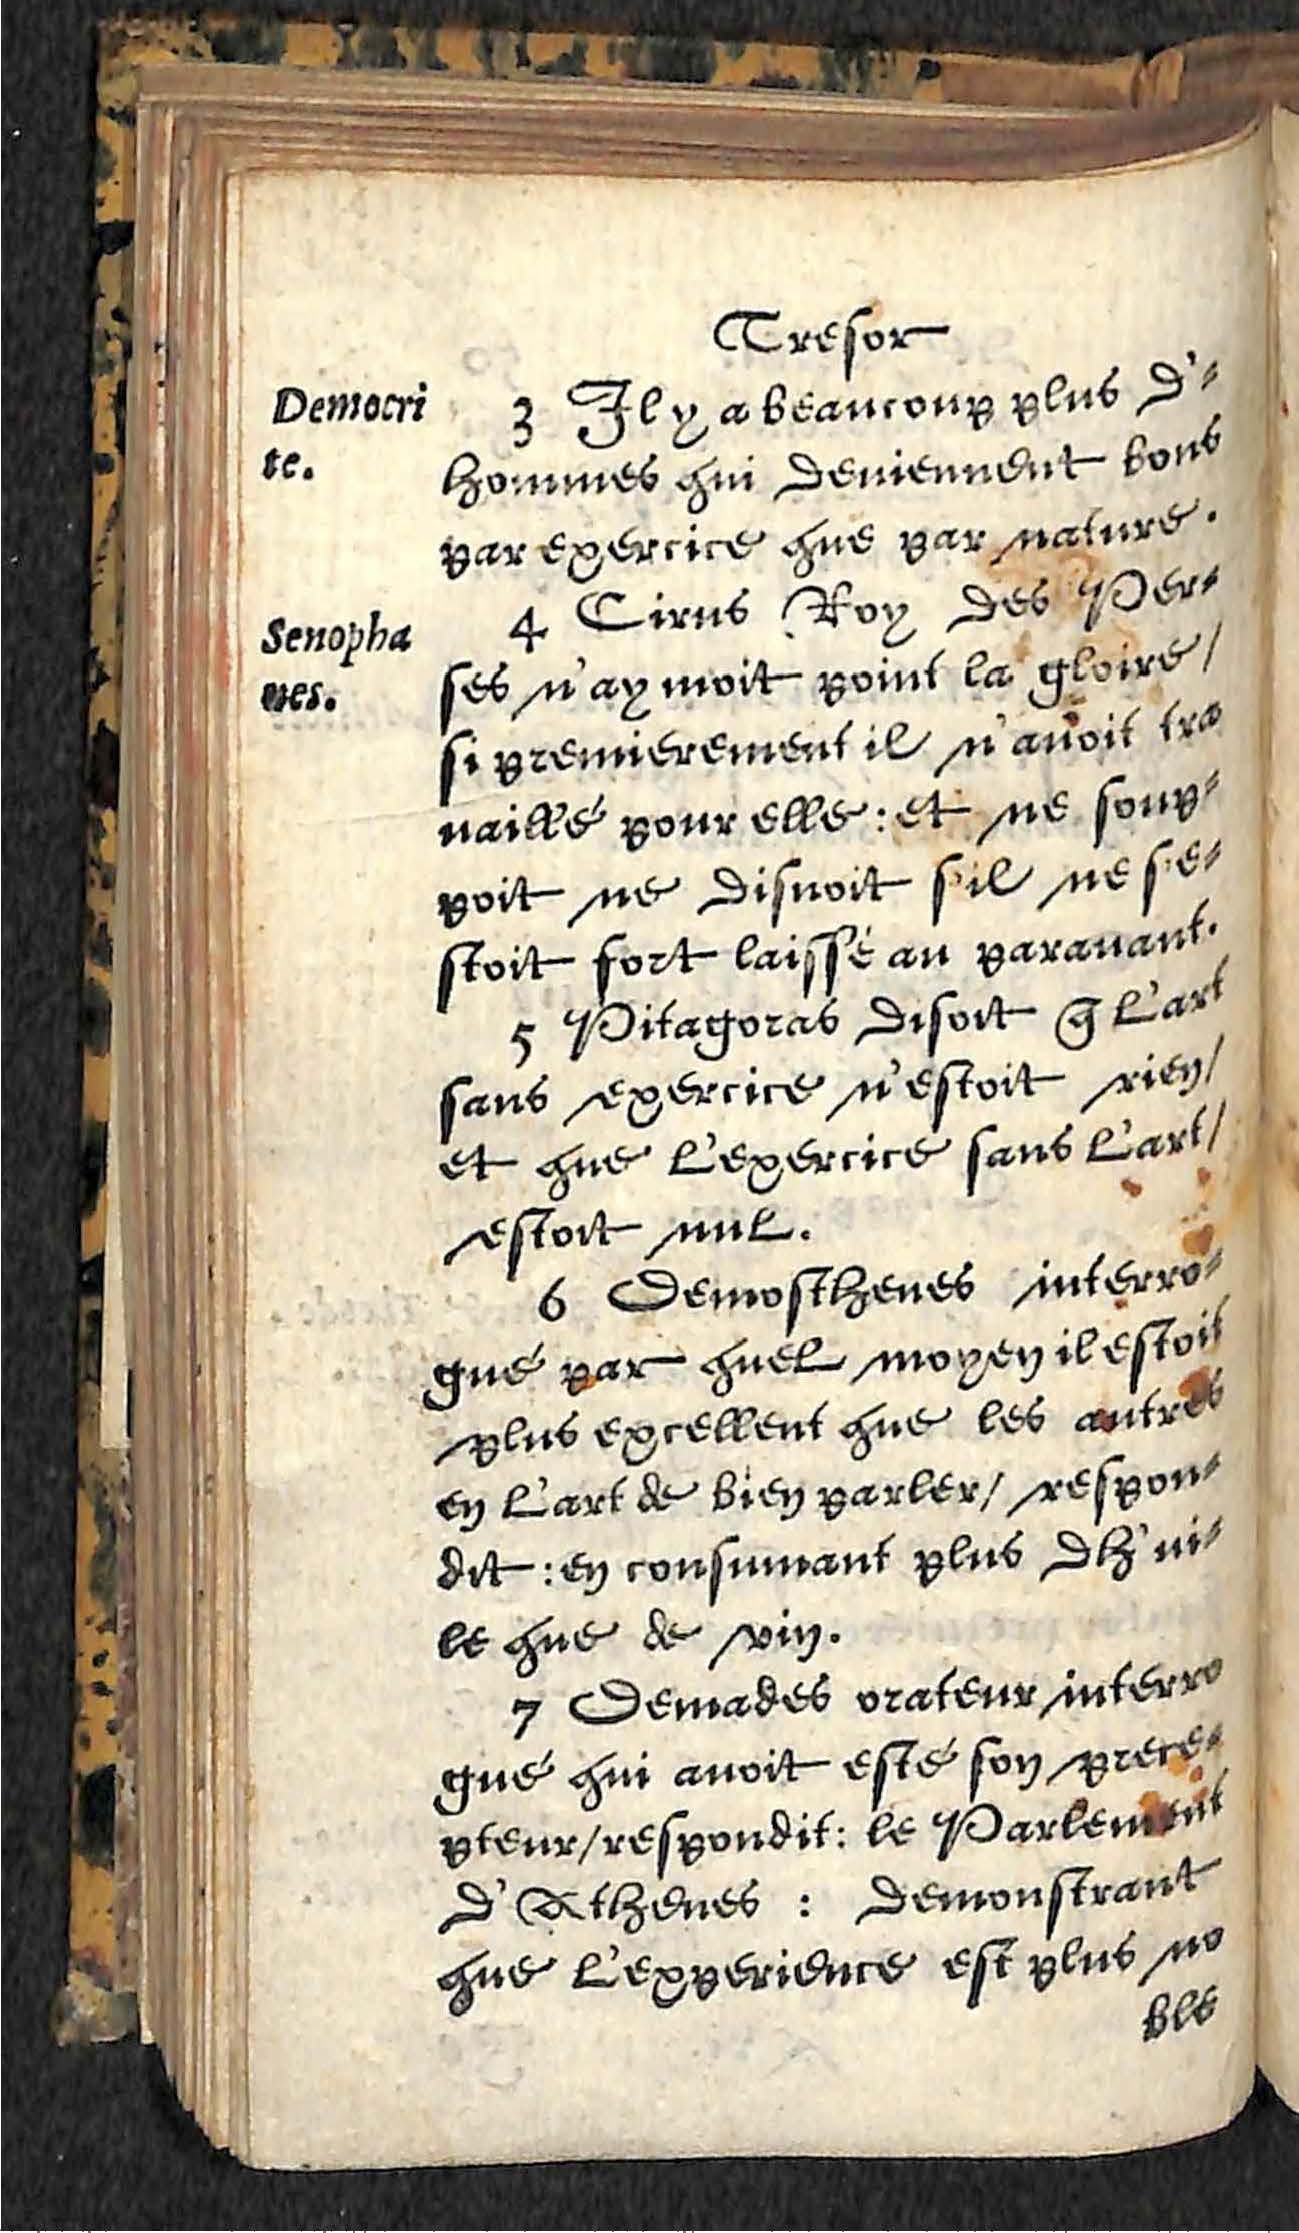 Tresor
Democri
te.
3 Il y a beaucoup plus d'-
hommes qui deuiennent bons
par exercice que par nature.
Senopha
nes.
4 Cirus Roy des Per-
ses n'aymoit point la gloire/
si premierement il n'auoit tra
uaillé pour elle: et ne soup-
poit ne disnoit s'il ne s'e-
stoit fort laissé au parauant.
5 Pitagoras disoit q̃ l'art
sans exercice n'estoit rien/
et que l'exercice sans l'art/
estoit nul.
6 Demosthenes interro-
gué par quel moyen il estoit
plus excellent que les autres
en l'art de bien parler/ respon-
dit: en consumant plus dh'ui-
le que de vin.
7 Demades orateur interro
gué qui auoit esté son prece-
pteur/respondit: le Parlement
d'Athenes : demonstrant
que l'experience est plus no
ble